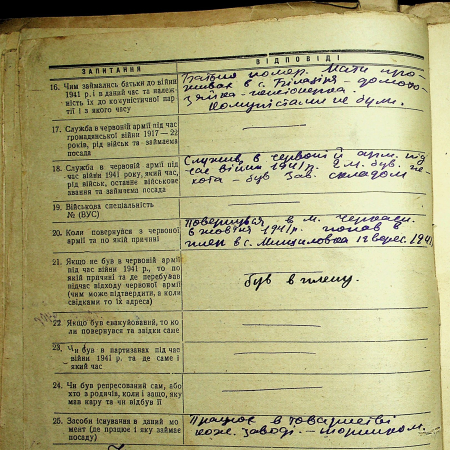 ЗАПИТАННЯ
ВІДПОВІДІ
16. Чим займались батьки до війни
1941 р. і в даний час та належ-
ність їх до комуністичної пар-
тії і з якого часу
Батько помер. Мати про-
живає в с. домого-
зяйка-пенсіонерка.
Комуністами не були.
17. Служба в червоній армії під час
громадянської війни 1917—22
років, рід військ та займаєма
посада
18. Служба в червоній армії під
час війни 1941 року, який час,
рід військ, останнє військове
звання та займаєма посада
Служив в червоній арм. під
час війни 1941 р. був
був зав. складом
19. Військова спеціальність
№ (ВУС)
20. Коли повернувся з червоної
армії та по якій причині
Повернувся в м. Черкаси.
в жовтні 1941 р. попав в
плен в с. 1941
21. Якщо не був в червоній армії
під час війни 1941 р., то по
якій причині та де перебував
підчас відходу червоної армії
(чим може підтвердити, в коли
свідками то їх адреса)
був в плену.
22 Якщо був евакуйований, то ко-
ли повернувся та звідки саме
23. Чи був в партизанах під час
війни 1941 р. та де саме і
який час
24. Чи був репресований сам, або
хто з родичів, коли і защо, яку
мав кару та чи відбув її
25. Засоби існування в даний мо-
мент (де працює і яку займає
посаду)
Працює в товаристві
кож. заводі —